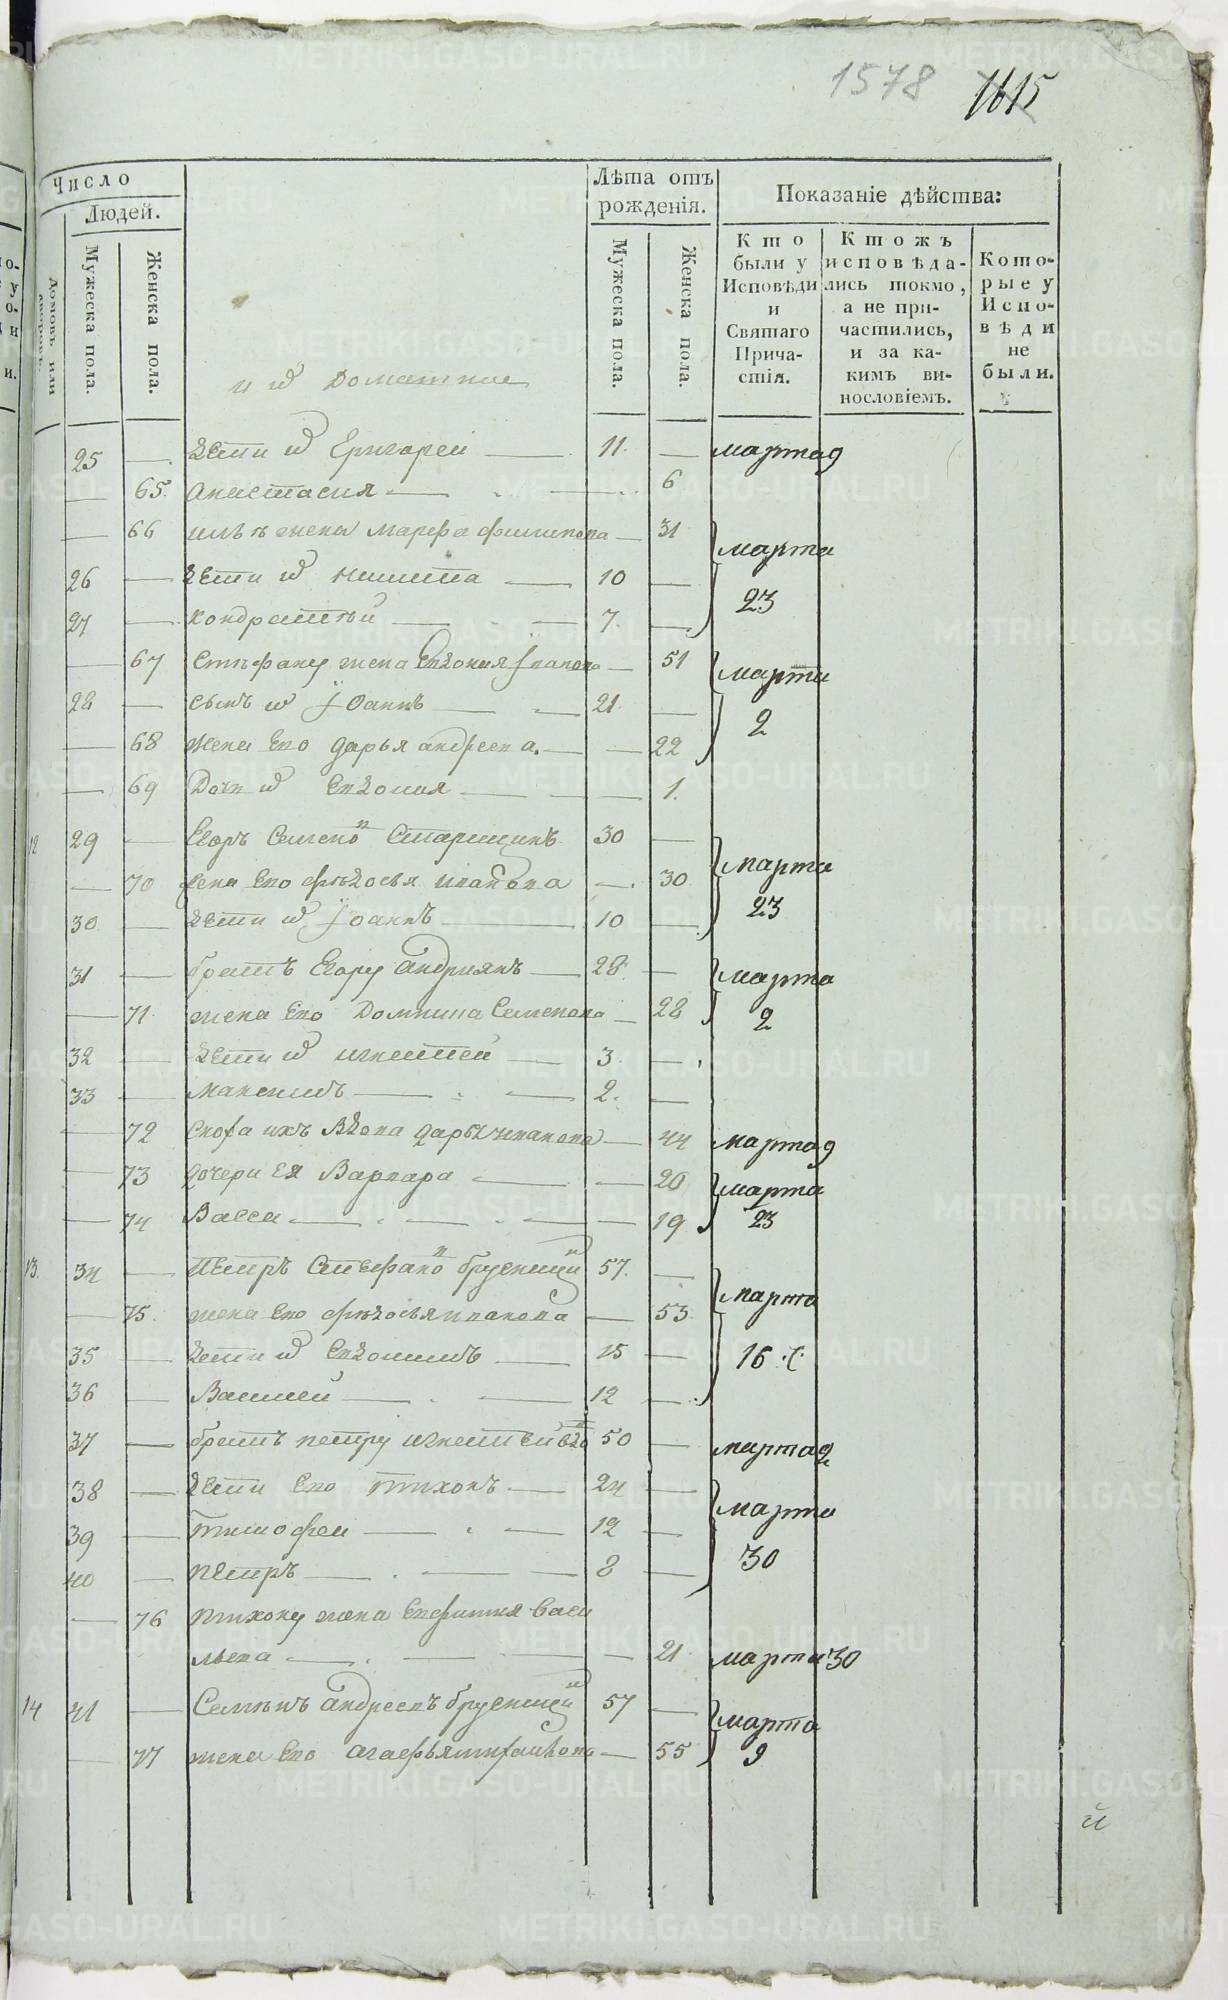 1578 1615
Число
Людей.
Домовъ или
Мужеска пола.
Женска пола.
Лѣта отъ
рожденія.
Мужеска пола.
Женска пола.
Показаніе дѣйства:
Кто
были у
Исповѣди
и
Святаго
Прича-
стія.
Ктожъ
исповѣда-
лись токмо,
а не при-
частились,
и за ка-
кимъ ви-
нословіемъ.
Кото-
рые у
Испо-
вѣди
не
были.
и ѿ домашние
25 — дети ѿ Григореи — 11. — марта 9
— 65. Анастасия — 6
— 66 жена Марфа Филипова — 31 марта
26 — дети ѿ Никита — 10 —
27 — Кондратѣй — 7. — 23
— 67 Стефану жена Евдокия — 51 марта
28 — сынъ ѿ Іоаннъ — 21. — 2
— 68 жена Ево Дарья Андреева — 22
— 69 Дочь ѿ Евдокия — 1.
12 29 — Егоръ Семеновъ Старицинъ 30 — марта
— 70 жена Ево Федосья Иванова — 30
30 — дети ѿ Іоаннъ 10 — 23
31 — братъ Егору Андриянъ — 28 — марта
— 71 жена Ево Домнина Семенова — 28 2
32 — дети ѿ Игнатей — 3. —
33 — Максимъ — 2. —
— 72 сноха ихъ Вдова Дарья Иванова — 44 марта 9
— 73 дочери Ея Варвара — 20 марта
— 74 Васса — 19 23
13. 34 — Петръ Стефановъ 57. — марта
— 75. жена Ево Федосья Иванова — 53
35 — дети ѿ Евдокимъ — 15 — 16
36 — Василей — 12 —
37 — братъ Петру Игнатей 50 — марта
38 — дети Ево Тихонъ — 24 — марта
39 — Тимофеи — 12 —
40 — Петръ — 8 — 30
— 76 Тихону жена Васи
льева — 21 марта 30
14 41 — Андреевъ 57 — марта
— 77 жена Ево Агафья — 55 9
METRIKI.GASO-URAL.RU